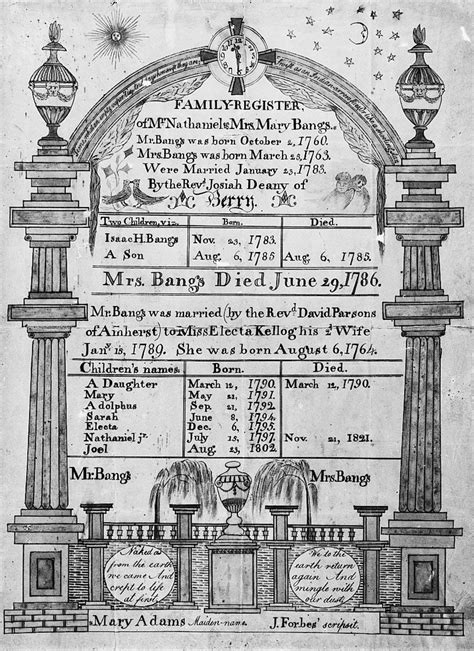 FAMILY-REGISTER,
of Mr. Nathaniel & Mrs. Mary Bangs.
Mr. Bangs was born October 2, 1760.
Mrs. Bangs was born March 23, 1763.
Were Married January 23, 1783.
By the Revd. Josiah Deany of
Berry.
Two Children, viz. Born. Died.
Isaac H. Bangs Nov. 23, 1783.
A Son Aug. 6, 1785 Aug. 6, 1785.
Mrs. Bangs Died June 29, 1786.
Mr. Bangs was married (by the Revd. David Parsons
of Amherst) to Miss Electa Kellog his 2d Wife
Jany. 18, 1789. She was born August 6, 1764.
Children's names. Born. Died.
A Daughter March 12, 1790. March 12, 1790.
Mary May 21, 1791.
Adolphus Sep. 21, 1792.
Sarah June 8, 1794.
Electa Dec. 6, 1795.
Nathaniel jr. July 15, 1797. Nov. 21, 1821.
Joel Aug. 23, 1802.
Mr. Bangs Mrs. Bangs
Naked as
from the earth
we came And
crept to life
at first
We to the
earth return
again And
mingle with
our dust
Mary Adams Maiden-name. J. Forbes' scripsit.